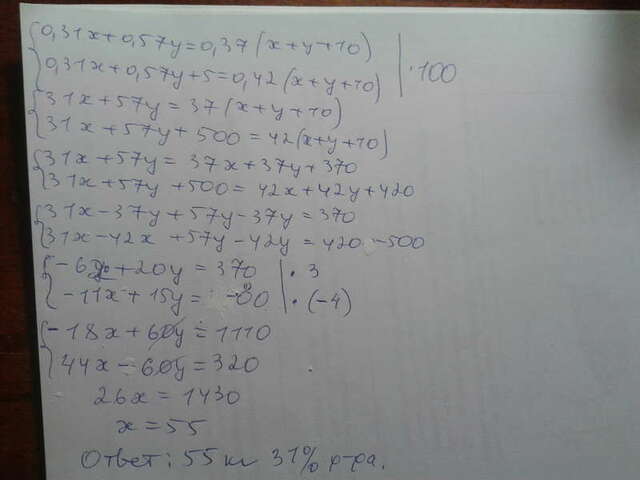 0,31x+0,57y=0,37(x+y+10)
0,31x+0,57y+5=0,42(x+y+10) | ·100
31x+57y=37(x+y+10)
31x+57y+500=42(x+y+10)
31x+57y=37x+37y+370
31x+57y+500=42x+42y+420
31x-37y+57y-37y=370
31x-42x+57y-42y=420-500
-6x+20y=370 | ·3
-11x+15y=-80 | ·(-4)
-18x+60y=1110
44x-60y=320
26x=1430
x=55
Ответ: 55 кг 31% р-ра.